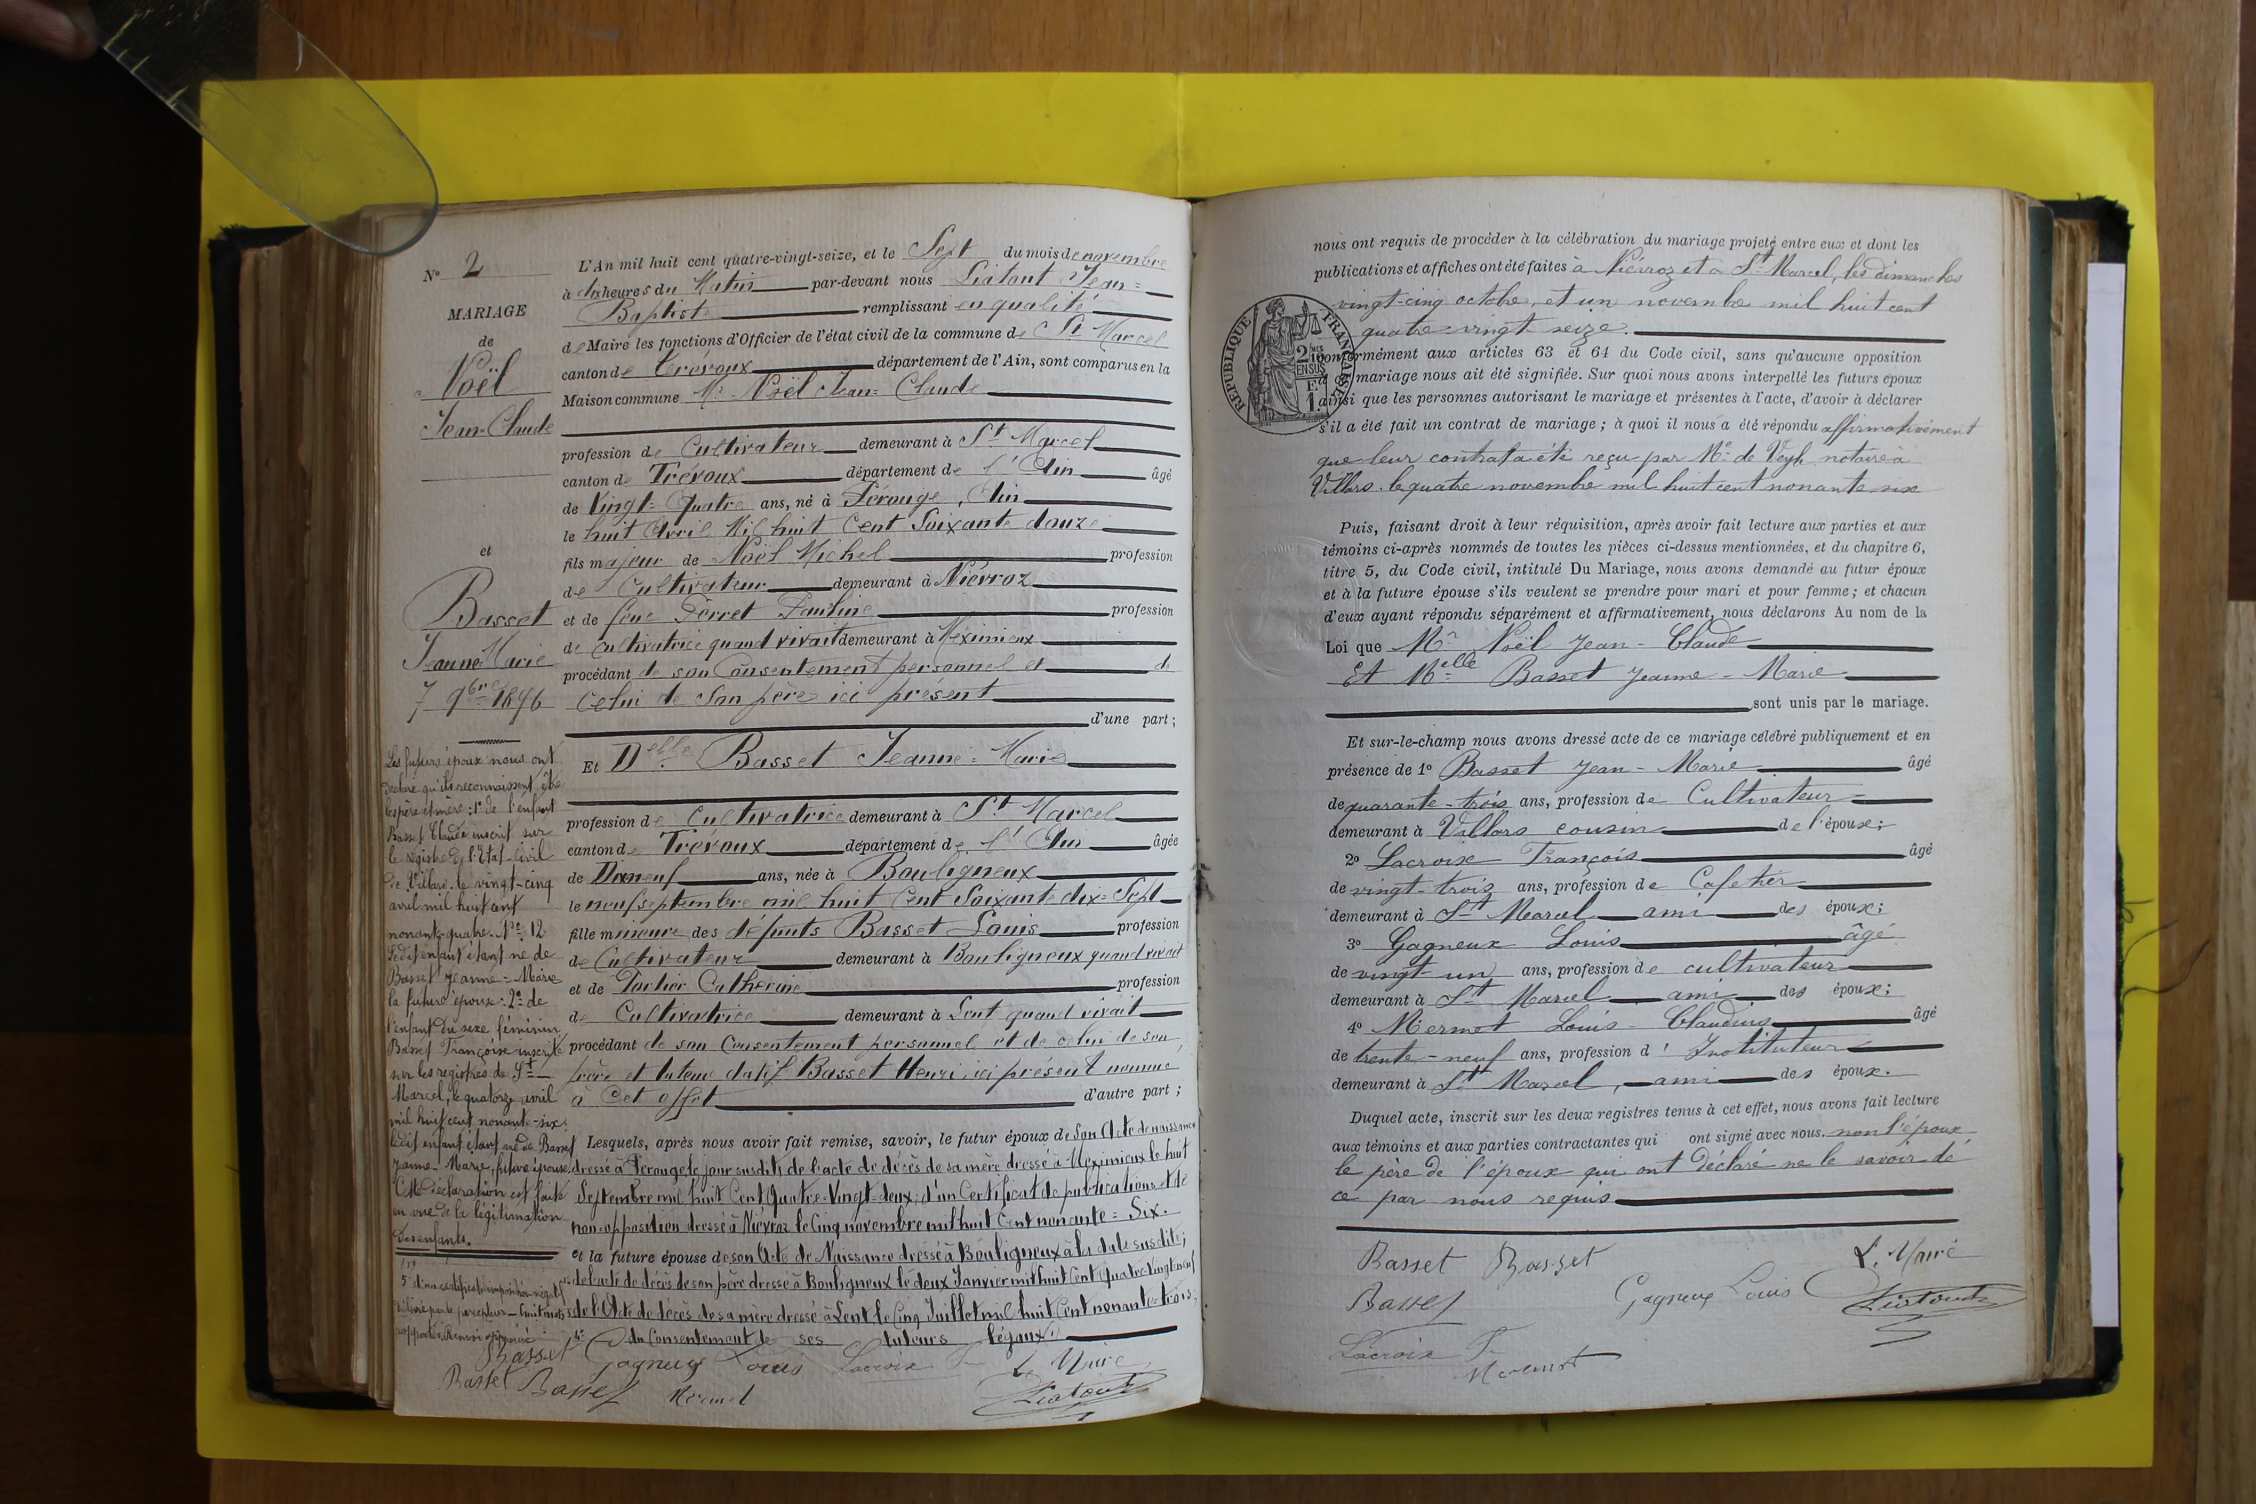 N° 2
MARIAGE
de
Noël
Jean-Claude
et
Basset
Jeanne Marie
7 9bre 1896
Les futurs époux nous ont
déclaré qu'ils reconnaissent être
les père et mère : 1° de l'enfant
Basset Claude inscrit sur
le registre de l'Etat-Civil
de Villars le vingt-cinq
avril mil huit cent
nonante-quatre N° 12
Ledit enfant étant né de
Basset Jeanne-Marie
la future épouse : 2° de
l'enfant du sexe féminin
Basset Françoise inscrite
sur les registres de St
Marcel, le quatorze avril
mil huit cent nonante-six
ledit enfant étant né de Basset
Jeanne-Marie, future épouse.
Cette déclaration est faite
en vue de la légitimation
des enfants.
L'An mil huit cent quatre-vingt-seize, et le Sept du mois de novembre
à dix heures du Matin par-devant nous Liatout Jean=
Baptiste remplissant en qualité
de Maire les fonctions d'Officier de l'état civil de la commune de St Marcel
canton de Trévoux département de l'Ain, sont comparus en la
Maison commune Mr Noël Jean=Claude
profession de Cultivateur demeurant à St Marcel
canton de Trévoux département de l'Ain âgé
de Vingt=Quatre ans, né à Pérouge, Ain
le huit Avril Mil huit Cent Soixante douze
fils majeur de Noël Michel profession
de Cultivateur demeurant à Niévroz
et de feue Perret Pauline profession
de cultivatrice quand vivait demeurant à Méximieux
procédant de son Consentement personnel et de
Celui de Son père ici présent
d'une part ;
Et Delle Basset Jeanne=Marie
profession de Cultivatrice demeurant à St Marcel
canton de Trévoux département de l'Ain âgée
de Dixneuf ans, née à Bouligneux
le neuf septembre mil huit Cent Soixante dix=Sept
fille mineure des défunts Basset Louis profession
de Cultivateur demeurant à Bouligneux quand vivait
et de Portier Catherine profession
de Cultivatrice demeurant à Lent quand vivait
procédant de son Consentement personnel et de celui de son
frère et tuteur datif Basset Henri, ici présent nommé
à Cet effet d'autre part ;
Lesquels, après nous avoir fait remise, savoir, le futur époux de Son Acte de naissance
dressé à Pérouge le jour susdit; de l'acte de décès de sa mère dressé à Méximieux le huit
Septembre mil huit Cent Quatre-Vingt-deux; d'un Certificat de publications et de
non=opposition dressé à Niévroz le Cinq novembre mil huit Cent nonante=Six.
et la future épouse de son Acte de Naissance dressé à Bouligneux à la date susdite;
de l'acte de décès de son père dressé à Bouligneux le deux Janvier mil huit Cent Quatre-Vingt neuf
de l'Acte de décès de sa mère dressé à Lent le Cinq Juillet mil huit Cent nonante-trois;
4° du Consentement de ses tuteurs légaux
Basset Gagneux Louis Lacroix F. Le Maire
Basset Basset Mermet Liatout
nous ont requis de procéder à la célébration du mariage projeté entre eux et dont les
publications et affiches ont été faites à Niévroz et à St Marcel, les dimanches
vingt-cinq octobre, et un novembre mil huit cent
quatre-vingt seize.
REPUBLIQUE FRANÇAISE
conformément aux articles 63 et 64 du Code civil, sans qu'aucune opposition
à mariage nous ait été signifiée. Sur quoi nous avons interpellé les futurs époux
ainsi que les personnes autorisant le mariage et présentes à l'acte, d'avoir à déclarer
s'il a été fait un contrat de mariage ; à quoi il nous a été répondu affirmativement
que leur contrat a été reçu par Me de Veyh notaire à
Villars. le quatre novembre mil huit cent nonante six
Puis, faisant droit à leur réquisition, après avoir fait lecture aux parties et aux
témoins ci-après nommés de toutes les pièces ci-dessus mentionnées, et du chapitre 6,
titre 5, du Code civil, intitulé Du Mariage, nous avons demandé au futur époux
et à la future épouse s'ils veulent se prendre pour mari et pour femme ; et chacun
d'eux ayant répondu séparément et affirmativement, nous déclarons Au nom de la
Loi que Mr Noël Jean-Claude
Et Melle Basset Jeanne-Marie
sont unis par le mariage.
Et sur-le-champ nous avons dressé acte de ce mariage célébré publiquement et en
présence de 1° Basset Jean-Marie âgé
de quarante-trois ans, profession de Cultivateur
demeurant à Villars cousin de l'épouse;
2° Lacroix François âgé
de vingt-trois ans, profession de Cafetier
demeurant à St Marcel ami des époux;
3° Gagneux Louis âgé
de vingt un ans, profession de cultivateur
demeurant à St Marcel ami des époux;
4° Mermet Louis-Claudius âgé
de trente-neuf ans, profession d'Instituteur
demeurant à St Marcel, ami des époux.
Duquel acte, inscrit sur les deux registres tenus à cet effet, nous avons fait lecture
aux témoins et aux parties contractantes qui ont signé avec nous. non l'époux
le père de l'époux qui ont déclaré ne le savoir de
ce par nous requis
Basset Basset Le Maire
Basset Gagneux Louis Liatout
Lacroix F.
Mermet